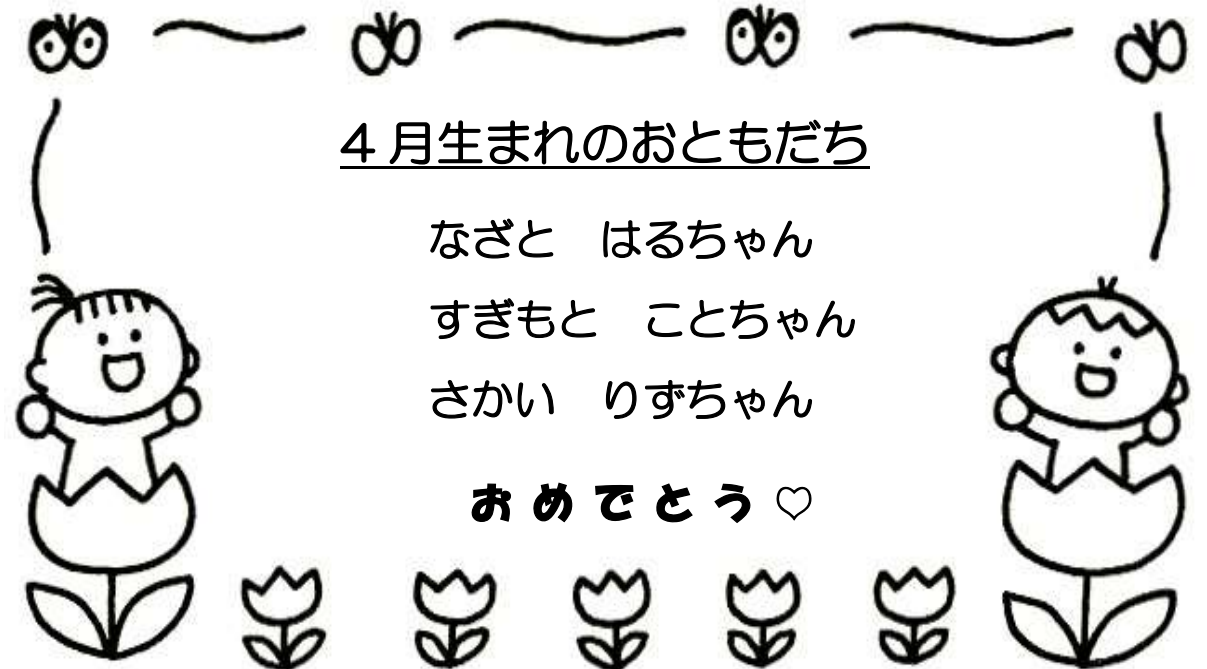 ４月生まれのおともだち
なざと　はるちゃん
すぎもと　ことちゃん
さかい　りずちゃん
おめでとう♡